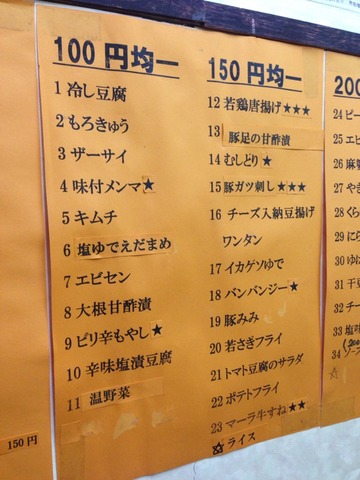 100 円均一
1 冷し豆腐
2 もろきゅう
3 ザーサイ
4 味付メンマ★
5 キムチ
6 塩ゆでえだまめ
7 エビセン
8 大根甘酢漬
9 ピリ辛もやし★
10 辛味塩漬豆腐
11 温野菜
150円
150 円均一
12 若鶏唐揚げ★★★
13 豚足の甘酢漬
14 むしどり★
15 豚ガツ刺し★★★
16 チーズ入納豆揚げ
ワンタン
17 イカゲソゆで
18 バンバンジー★
19 豚みみ
20 若さぎフライ
21 トマト豆腐のサラダ
22 ポテトフライ
23 マーラ牛すね★★
☆ライス
200
24 ピー
25 エビ
26 麻婆
27 キ
28 くら
29 にら
30 ゆ
31 干豆
32 チー
33 塩味
34 ソー